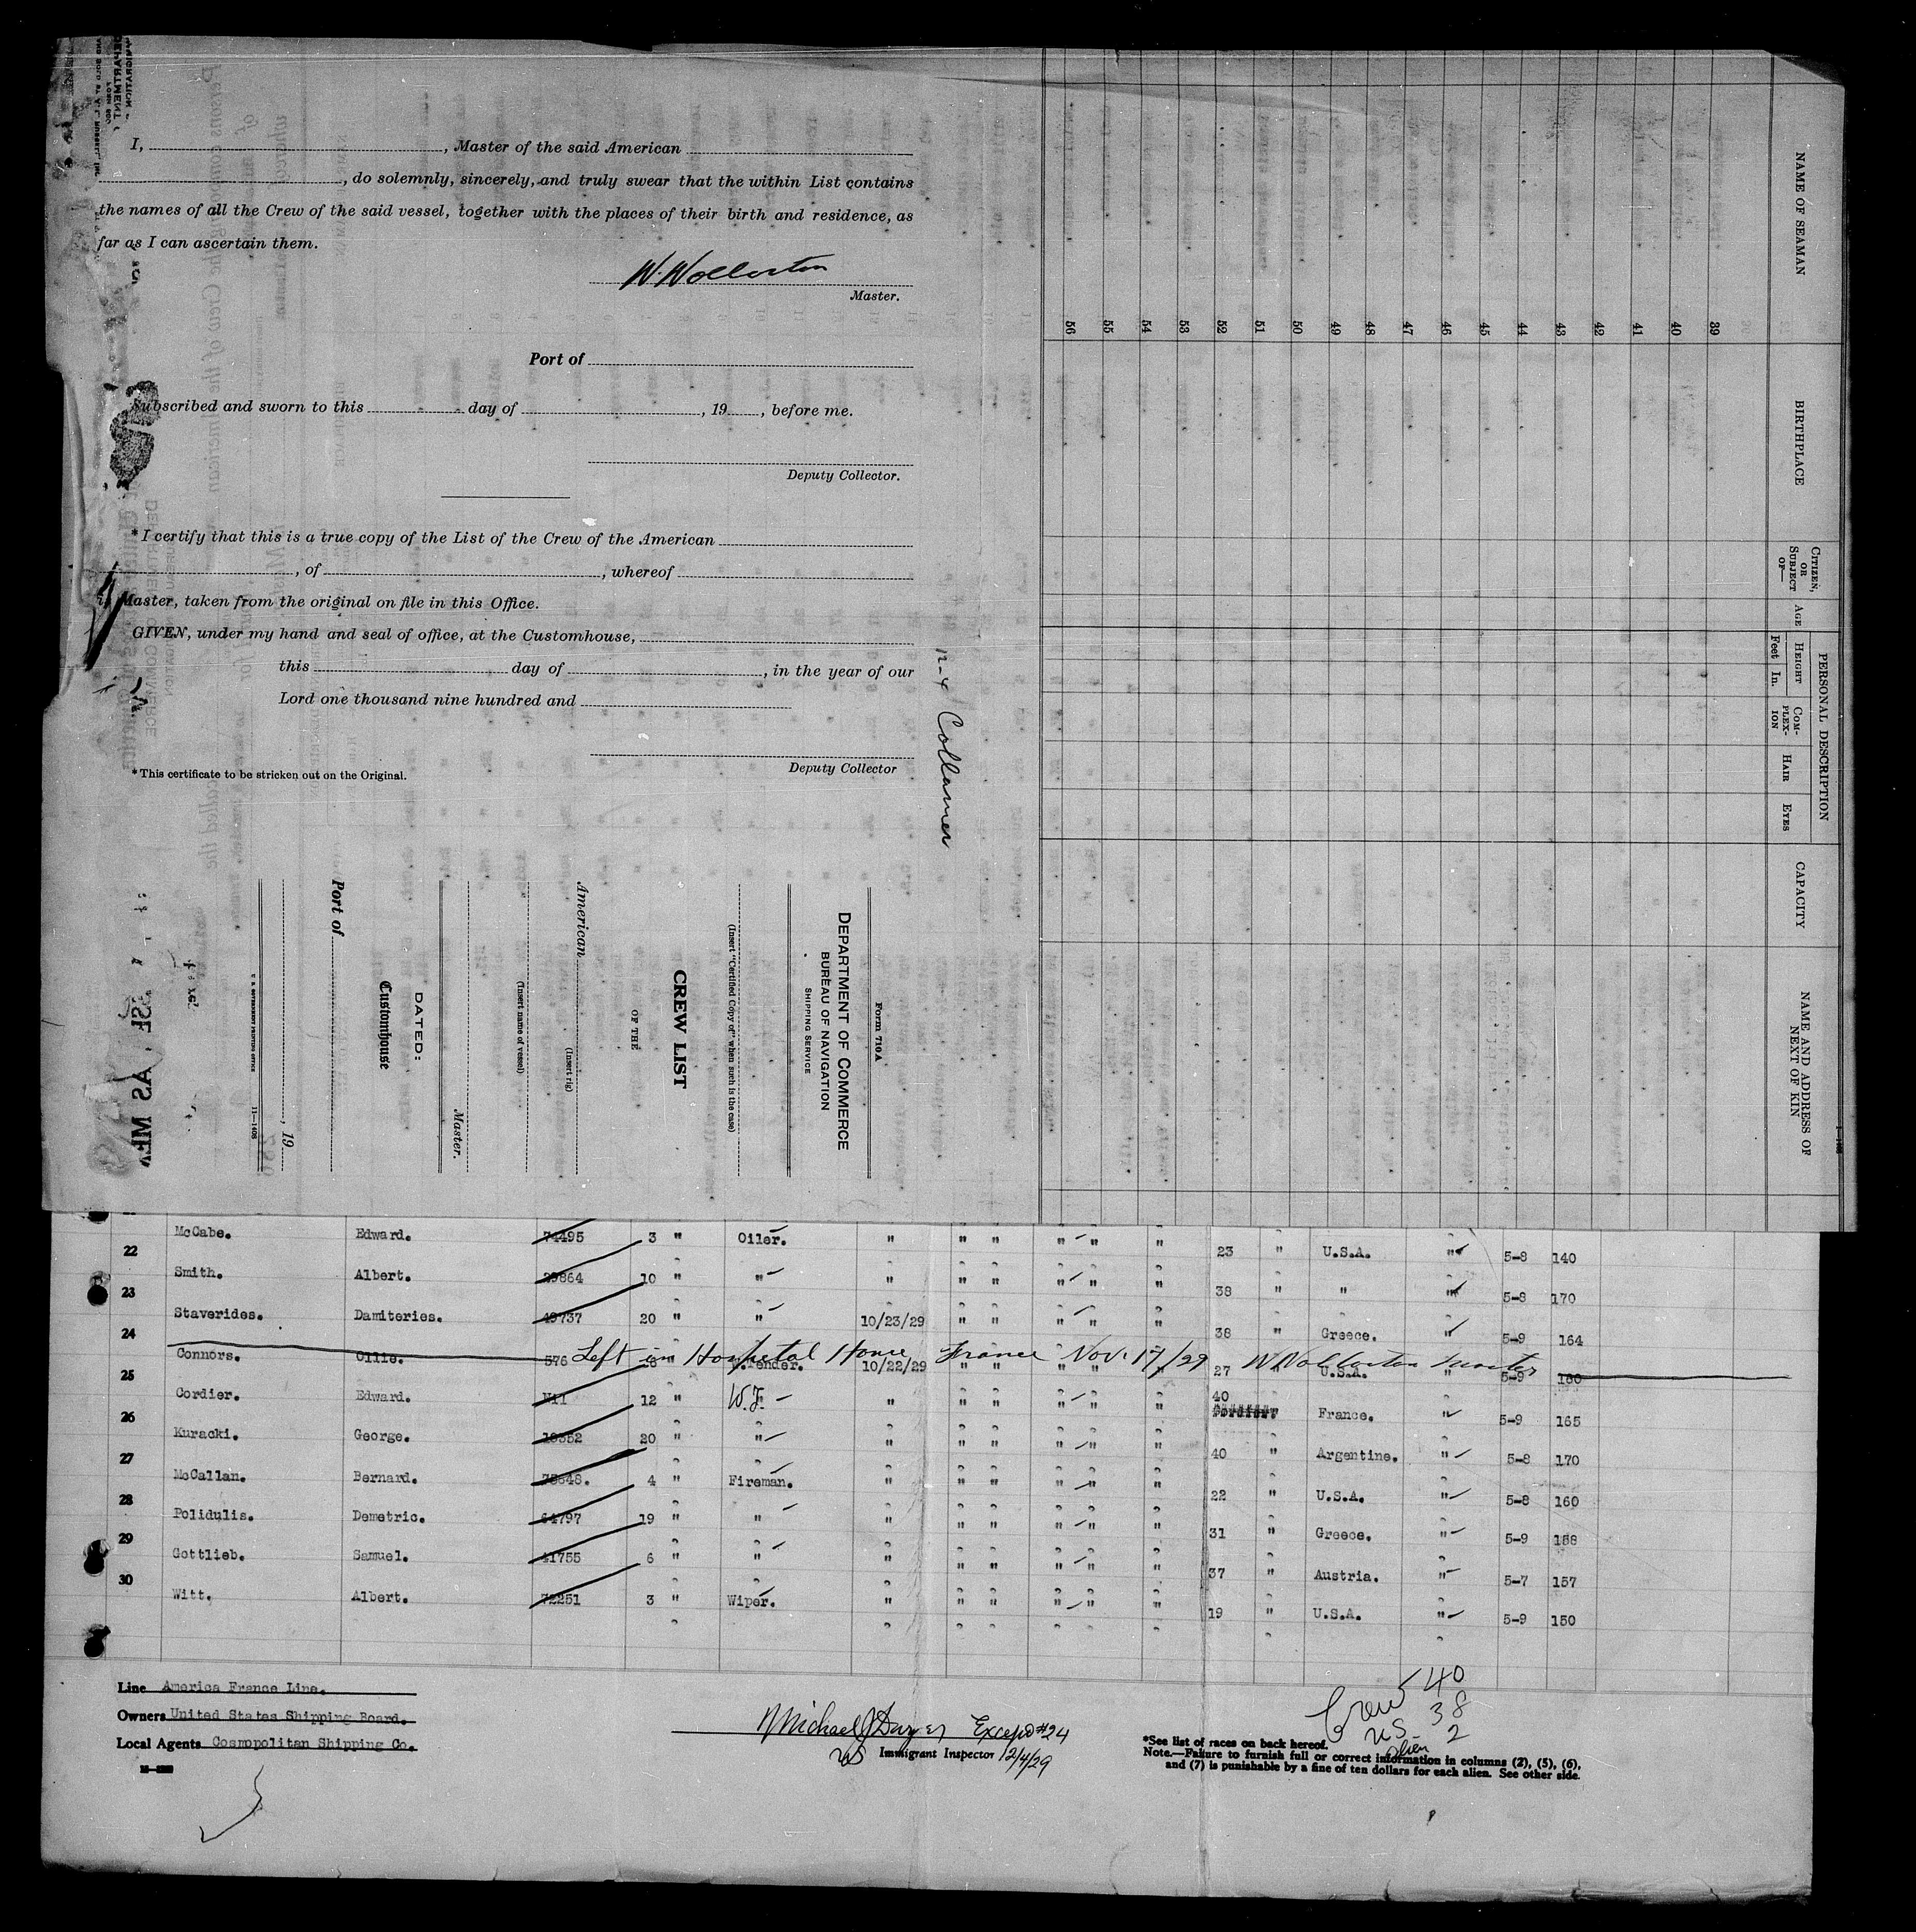 I, , Master of the said American
, do solemnly, sincerely, and truly swear that the within List contains
the names of all the Crew of the said vessel, together with the places of their birth and residence, as
far as I can ascertain them.
W. Wollaston
Master.
Port of
Subscribed and sworn to this day of , 19 , before me.
Deputy Collector.
* I certify that this is a true copy of the List of the Crew of the American
, of , whereof
is Master, taken from the original on file in this Office.
GIVEN, under my hand and seal of office, at the Customhouse,
this day of , in the year of our
Lord one thousand nine hundred and
Deputy Collector
* This certificate to be stricken out on the Original.
12-4 Collamer
Form 710 A
DEPARTMENT OF COMMERCE
BUREAU OF NAVIGATION
SHIPPING SERVICE
(Insert "Certified Copy of" when such is the case)
CREW LIST
OF THE
American
(Insert rig)
(Insert name of vessel)
Master.
DATED:
Customhouse
Port of
, 19
U. S. GOVERNMENT PRINTING OFFICE 11—1408
NAME OF SEAMAN
BIRTHPLACE
CITIZEN, OR SUBJECT OF—
AGE
PERSONAL DESCRIPTION
HEIGHT
Feet In.
COM-PLEX-ION
HAIR
EYES
CAPACITY
NAME AND ADDRESS OF NEXT OF KIN
39
40
41
42
43
44
45
46
47
48
49
50
51
52
53
54
55
56
McCabe. Edward. 74495 3 " Oiler. " " " " " " 23 " U.S.A. " 5-8 140
22 Smith. Albert. 29864 10 " " " " " " " " 38 " " " 5-8 170
23 Staverides. Damiteries. 49737 20 " " 10/23/29 " " " " " 38 " Greece. " 5-9 164
24 Connors. Ollie. 576 10/22/29 " " " " 27 " U.S.A. " 5-9 160
Left in Hospital Havre France Nov. 17/29 W Wollaston Master
25 Cordier. Edward. Nil 12 " W.T. " " " " " " 40 " France. " 5-9 165
26 Kuracki. George. 18352 20 " " " " " " " " 40 " Argentine. " 5-8 170
27 McCallan. Bernard. 4 " Fireman. " " " " " " 22 " U.S.A. " 5-8 160
28 Polidulis. Demetric. 64797 19 " " " " " " " " 31 " Greece. " 5-9 158
29 Gottlieb. Samuel. 41755 6 " " " " " " " " 37 " Austria. " 5-7 157
30 Witt. Albert. 72251 3 " Wiper. " " " " " " 19 " U.S.A. " 5-9 150
Line America France Line.
Owners United States Shipping Board.
Local Agents Cosmopolitan Shipping Co.
Michael J Dwyer Except #24
Immigrant Inspector 12/4/29
Crew 40
US 38
alien 2
*See list of races on back hereof.
Note.—Failure to furnish full or correct information in columns (2), (5), (6),
and (7) is punishable by a fine of ten dollars for each alien. See other side.